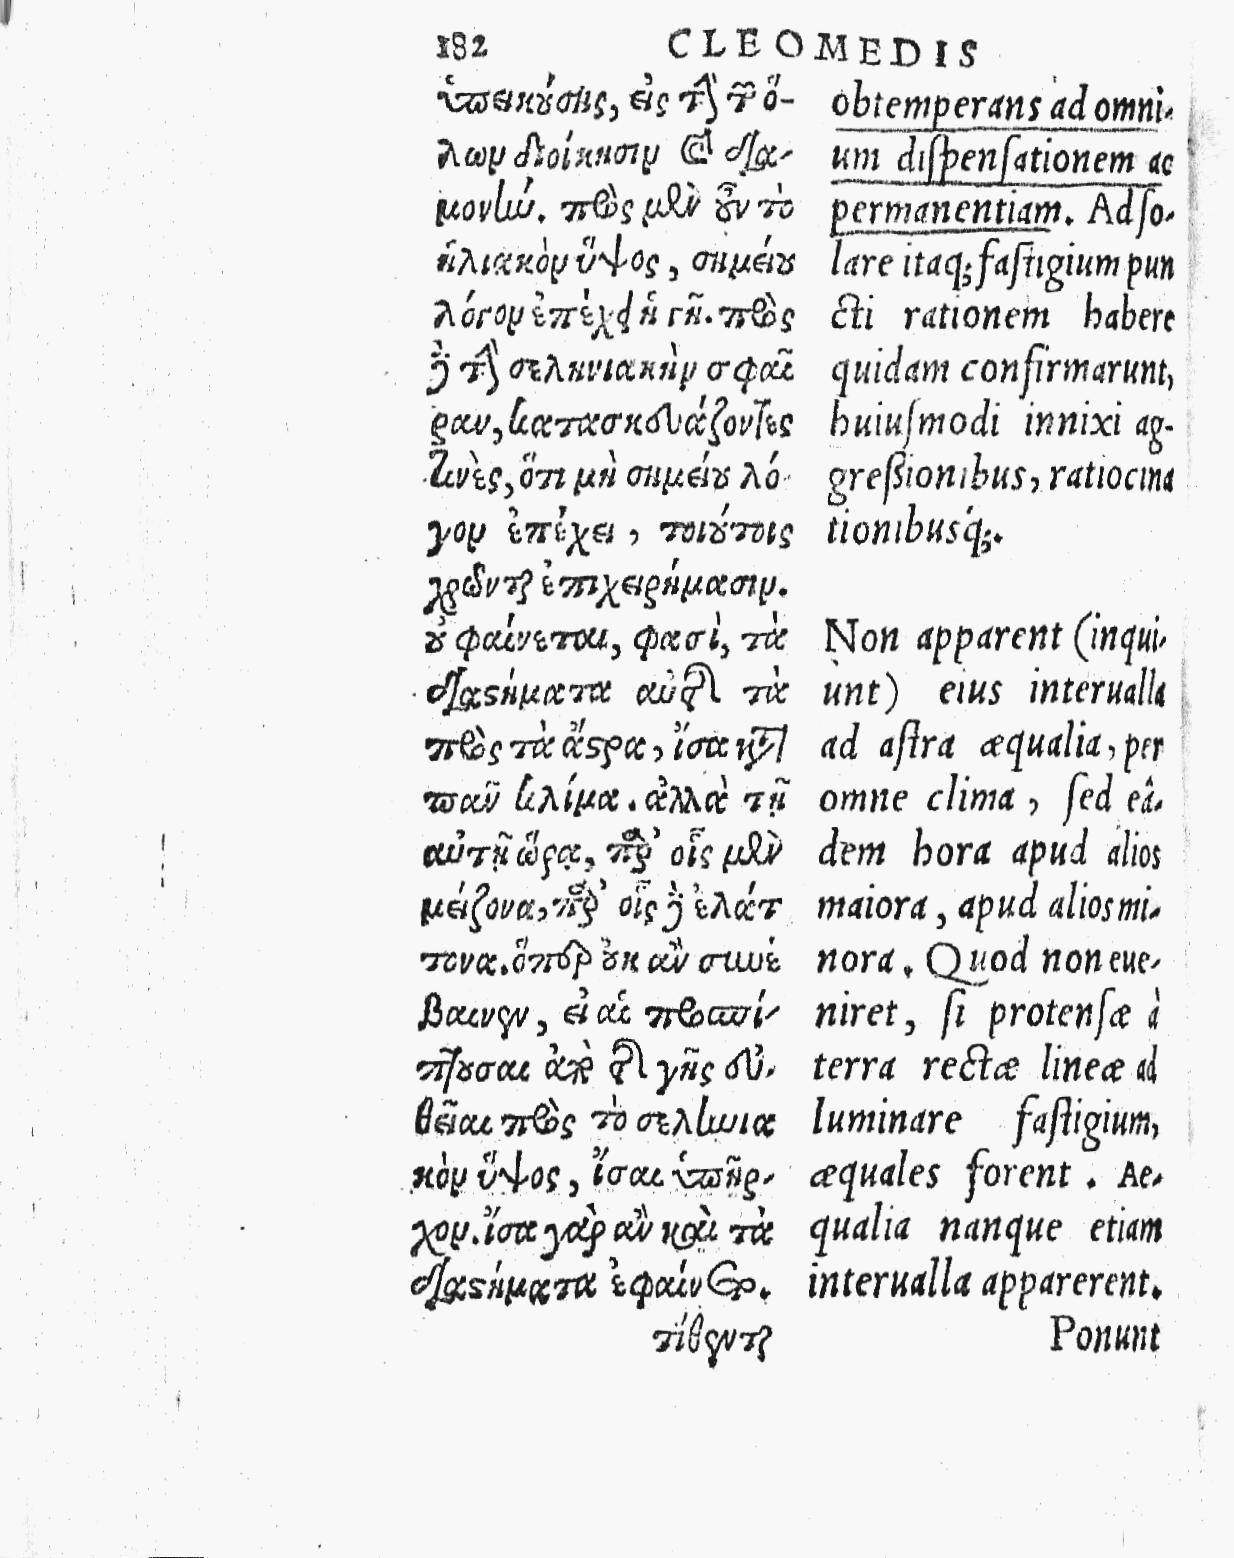 182 CLEOMEDIS
ὑπεικούσης, εἰς τὴν τῶν ὅ-
λων διοίκησιν καὶ δια-
μονήν. πρὸς μὲν οὖν τὸ
ἡλιακὸν ὕψος, σημείου
λόγον ἐπέχει ἡ γῆ. πρὸς
δὲ τὴν σεληνιακὴν σφαῖ
ραν, κατασκευάζοντες
τινὲς, ὅτι μὴ σημείου λό
γον ἐπέχει, τοιούτοις
χρῶνται ἐπιχειρήμασιν.
οὐ φαίνεται, φασὶ, τὰ
διαστήματα αὐτῆς τὰ
πρὸς τὰ ἄστρα, ἴσα κατὰ
πᾶν κλίμα. ἀλλὰ τῇ
αὐτῇ ὥρᾳ, παρ' οἷς μὲν
μείζονα, παρ' οἷς δὲ ἐλάτ
τονα. ὅπερ οὐκ ἂν συνέ
βαινεν, εἰ αἱ προσπί-
πτουσαι ἀπὸ τῆς γῆς εὐ-
θεῖαι πρὸς τὸ σεληνια
κὸν ὕψος, ἴσαι ὑπῆρ-
χον. ἴσα γὰρ ἂν καὶ τὰ
διαστήματα ἐφαίνετο.
τίθενται
obtemperans ad omni-
um dispensationem ac
permanentiam. Ad so-
lare itaq; fastigium pun
cti rationem habere
quidam confirmarunt,
huiusmodi innixi ag-
gressionibus, ratiocina
tionibusq́;.
Non apparent (inqui-
unt) eius interualla
ad astra æqualia, per
omne clima, sed eâ-
dem hora apud alios
maiora, apud alios mi-
nora. Quod non eue-
niret, si protensæ à
terra rectæ lineæ ad
luminare fastigium,
æquales forent. Ae-
qualia nanque etiam
interualla apparerent.
Ponunt